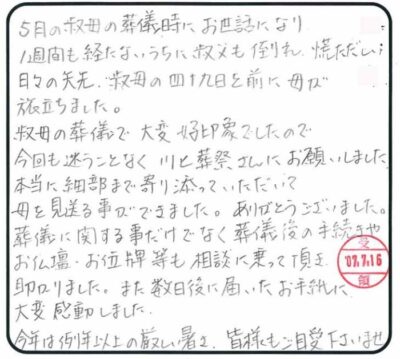 5月の叔母の葬儀時にお世話になり
1週間も経たないうちに叔父も倒れ、慌ただしい
日々の矢先、叔母の四十九日を前に母が
旅立ちました。
叔母の葬儀で大変好印象でしたので
今回も迷うことなく川と葬祭さんにお願いしました
本当に細部まで寄り添っていただいて
母を見送る事ができました。ありがとうございました。
葬儀に関する事だけでなく葬儀後の手続きや
お仏壇・お位牌等も相談に乗って頂き
助かりました。また数日後に届いたお手紙に
大変感動しました。
今年は例年以上の厳しい暑さ、皆様もご自愛下さいませ
受
'07.7.16
領